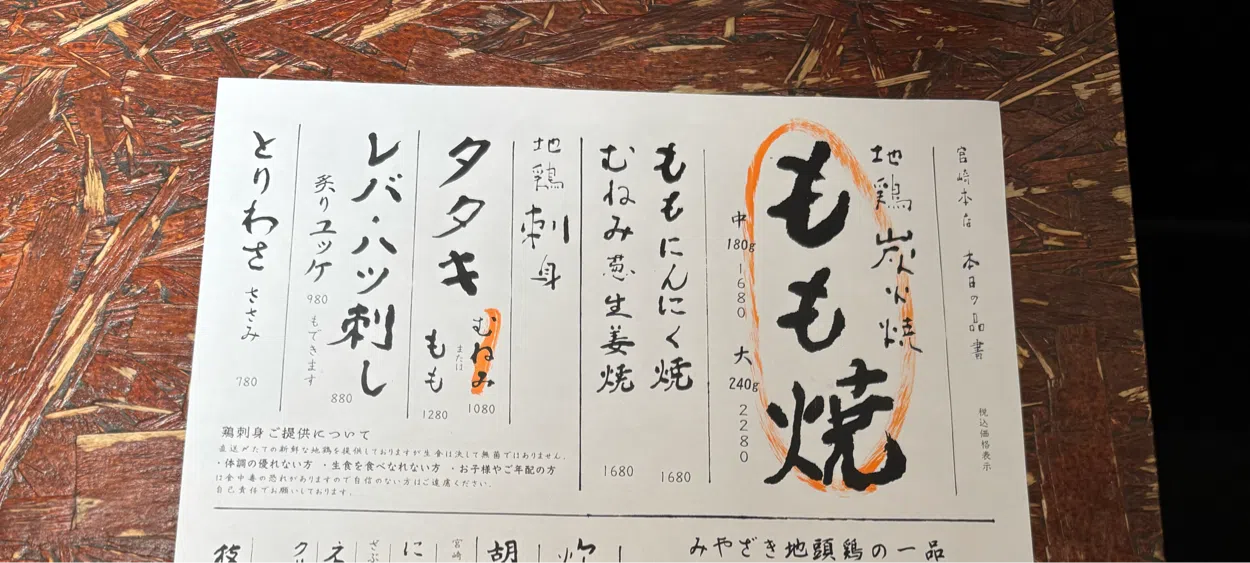 宮崎本店 本日の品書
税込価格表示
地鶏炭火焼
もも焼
中 180g 1680 大 240g 2280
ももにんにく焼 1680
むねみ葱生姜焼 1680
地鶏刺身
タタキ
むねみ 1080
または
もも 1280
レバ・ハツ刺し 880
炙りユッケ 980 もできます
とりわさ ささみ 780
鶏刺身ご提供について
直送がたての新鮮な地鶏を提供しておりますが生食は決して無菌ではありません。
・体調の優れない方 ・生食を食べなれない方 ・お子様やご年配の方
は食中毒の恐れがありますので自信のない方はご遠慮ください。
自己責任でお願いしております。
みやざき地頭鶏の一品
胡
宮崎
に
ざぶ
え